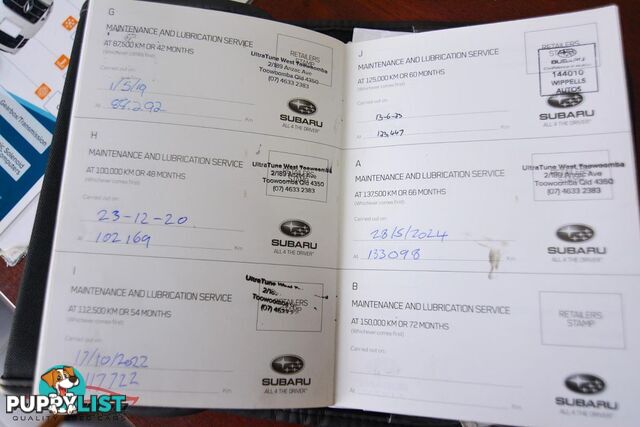 Gearbox/Transmission
Solenoid
G
MAINTENANCE AND LUBRICATION SERVICE
AT 87,500 KM OR 42 MONTHS
(Whichever comes first)
RETAILERS
UltraTune West Toowoomba
2/189 Anzac Ave
Toowoomba Qld 4350
(07) 4633 2383
Carried out on:
1/5/19
At
Km
SUBARU
ALL 4 THE DRIVER
H
MAINTENANCE AND LUBRICATION SERVICE
AT 100,000 KM OR 48 MONTHS
(Whichever comes first)
UltraTune West Toowoomba
2/189 Anzac Ave
Toowoomba Qld 4350
(07) 4633 2383
Carried out on:
23-12-20
At 102169 Km
SUBARU
ALL 4 THE DRIVER
I
MAINTENANCE AND LUBRICATION SERVICE
AT 112,500 KM OR 54 MONTHS
(Whichever comes first)
UltraTune West
Toowoomba
RETAILERS
Carried out on:
17/10/2022
117722 Km
SUBARU
ALL 4 THE DRIVER
J
MAINTENANCE AND LUBRICATION SERVICE
AT 125,000 KM OR 60 MONTHS
(Whichever comes first)
144010
WIPPELLS
AUTOS
Carried out on:
13-6-23
At 123,447 Km
SUBARU
ALL 4 THE DRIVER
A
MAINTENANCE AND LUBRICATION SERVICE
AT 137,500 KM OR 66 MONTHS
(Whichever comes first)
UltraTune West Toowoomba
2/189 Anzac Ave
Toowoomba Qld 4350
(07) 4633 2383
Carried out on:
28/5/2024
At 133098 Km
SUBARU
ALL 4 THE DRIVER
B
MAINTENANCE AND LUBRICATION SERVICE
AT 150,000 KM OR 72 MONTHS
(Whichever comes first)
RETAILERS
STAMP
Carried out on:
At
Km
SUBARU
ALL 4 THE DRIVER
PUPPYLIST